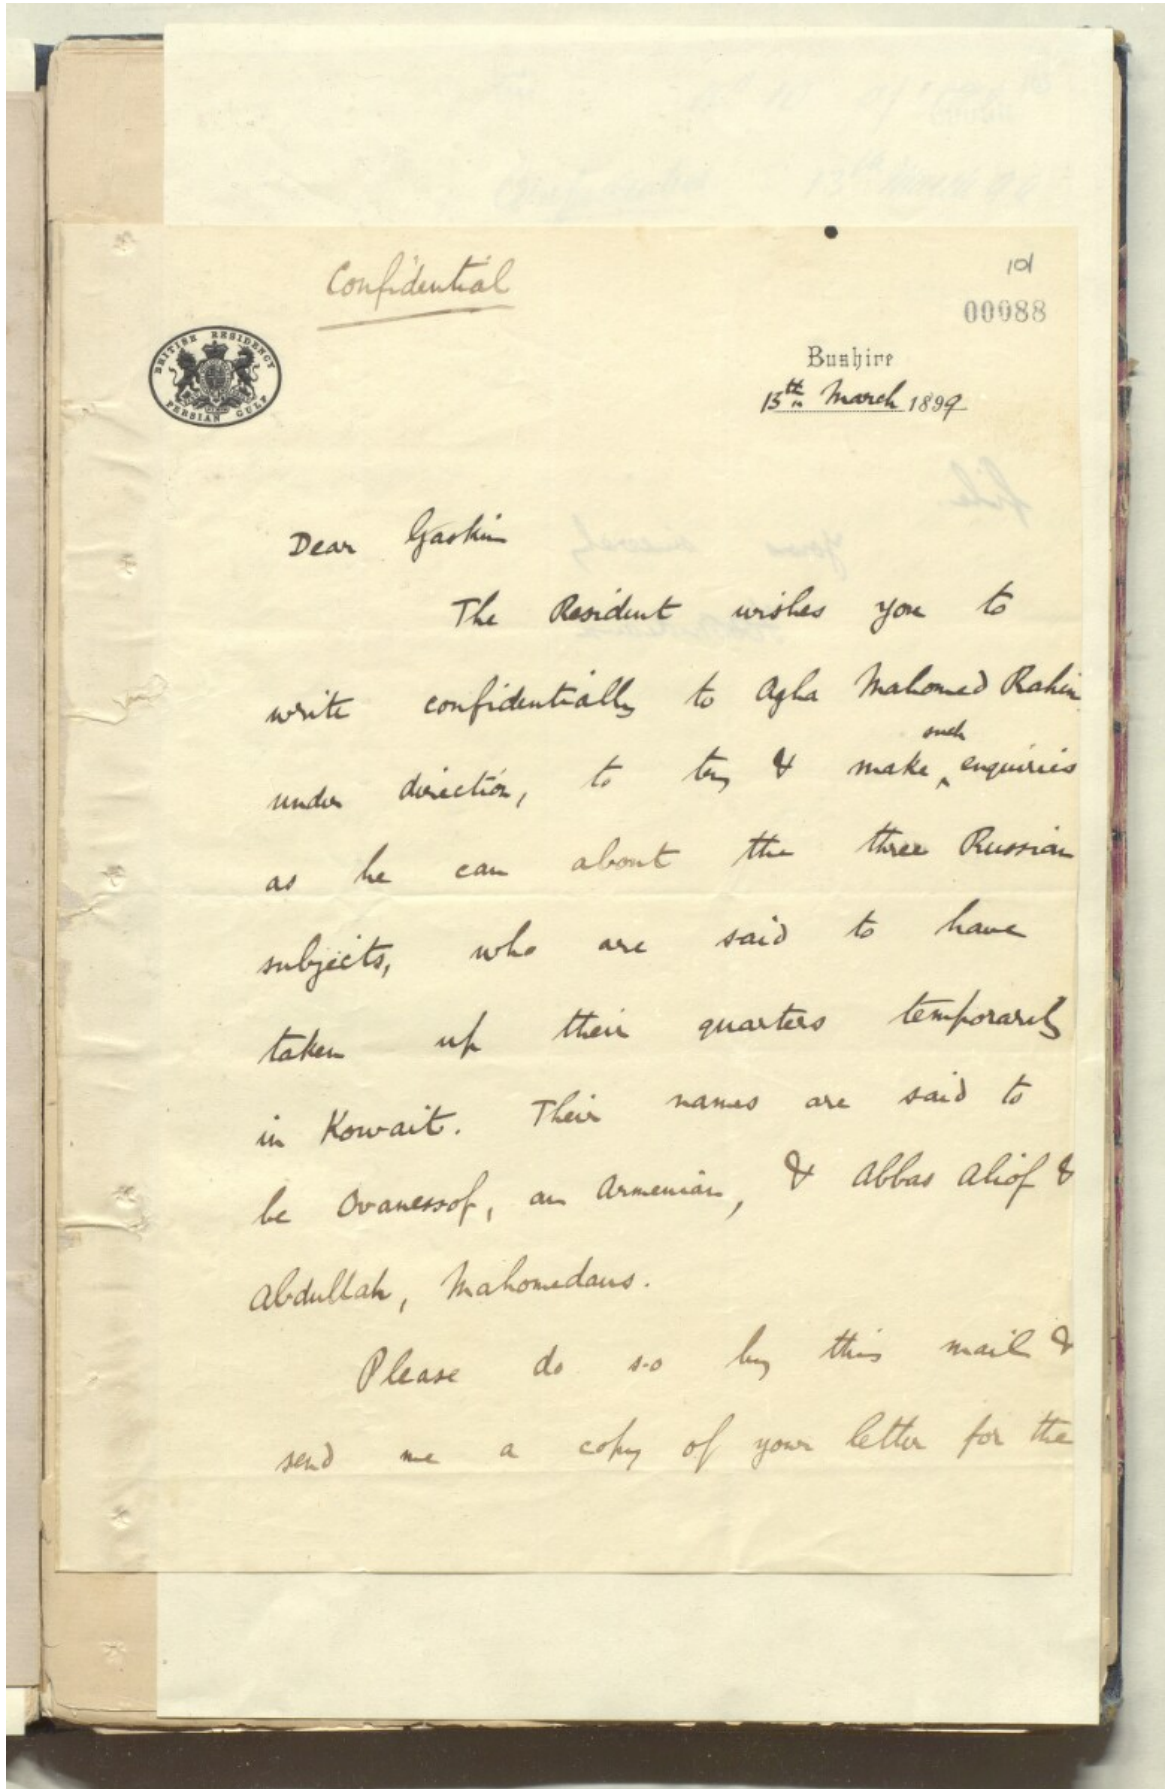 Confidential
101
00088
BRITISH RESIDENCY
PERSIAN GULF
Bushire
13th March 1899
Dear Gaskin
The Resident wishes you to
write confidentially to Agha Mahomed Rahim
under direction, to try & make such enquiries
as he can about the three Russian
subjects, who are said to have
taken up their quarters temporarily
in Kowait. Their names are said to
be Ovanessof, an Armenian, & Abbas Aliof &
Abdullah, Mahomedans.
Please do so by this mail &
send me a copy of your letter for the